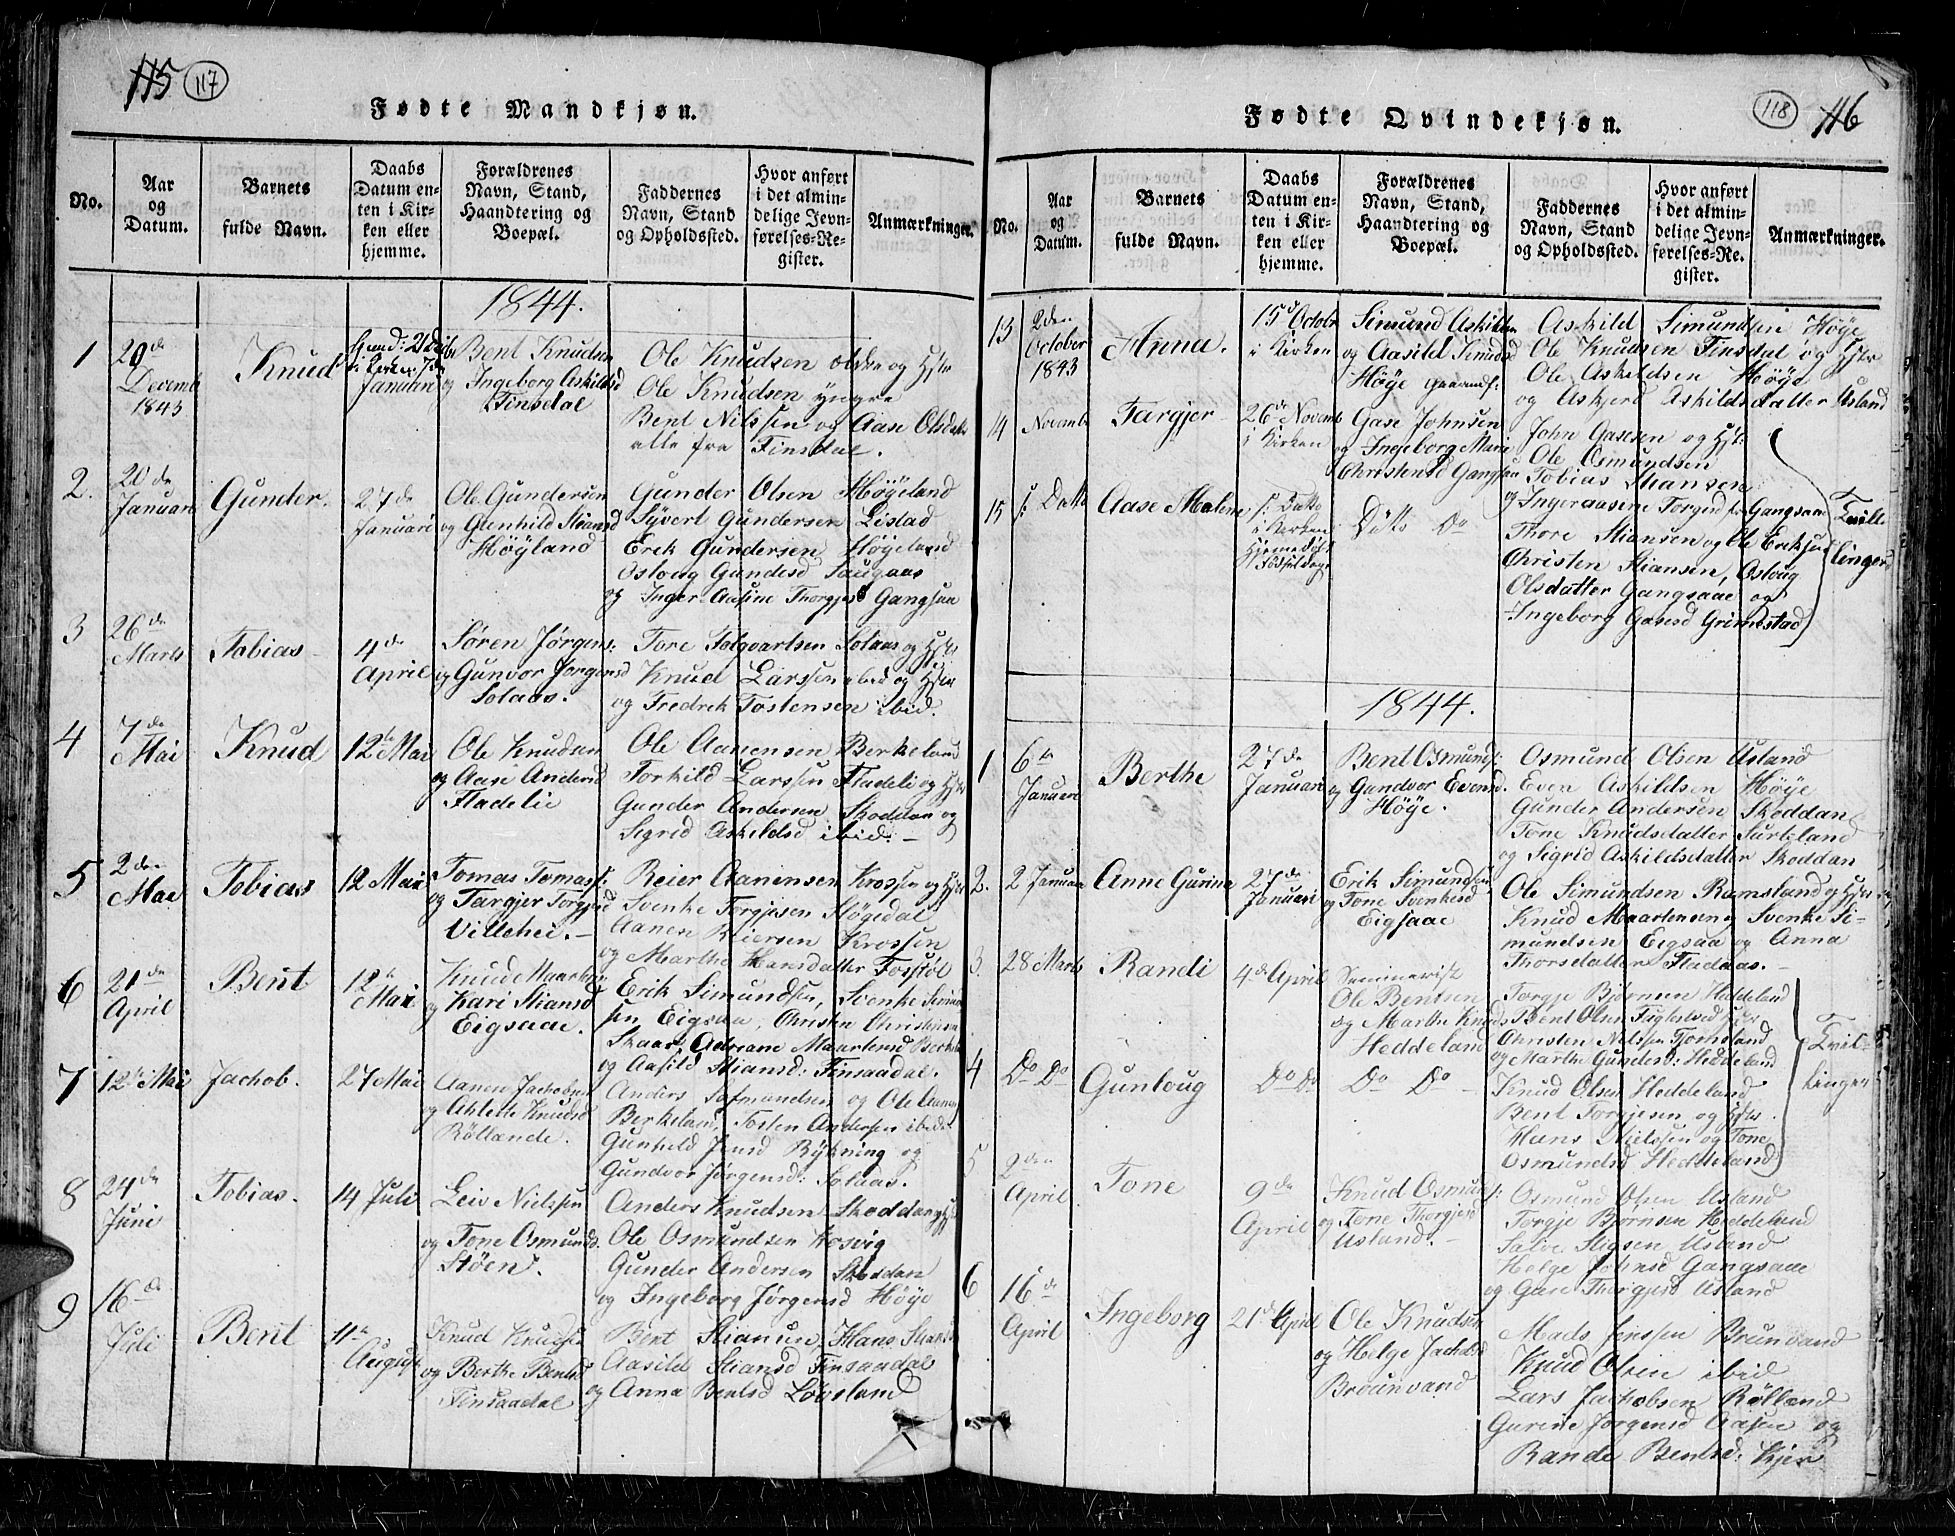 115 117
Fødte Mandkjøn.
No.
Aar
og
Datum.
Barnets
fulde Navn.
Daabs
Datum en-
ten i Kir-
ken eller
hjemme.
Forældrenes
Navn, Stand,
Haandtering og
Boepæl.
Faddernes
Navn, Stand
og Opholdssted.
Hvor anført
i det almin-
delige Jevn-
førelses-Re-
gister.
Anmærkninger.
1844.
1
20de
Decemb
1843
Knud
Januari
Bent Knudsen
og Ingeborg Askildsd
Finsdal
Ole Knudsen ældre og
Ole Knudsen yngre
Bent Nilssen og Aase Olsdatt
alle fra Finsdal.
2.
20de
Januari
Gunder.
27de
Januari
Ole Gundersen
og Gunhild Stiansd
Høyland
Gunder Olsen Høyeland
Syvert Gundersen Listad
Erik Gundersen Høyeland
Osloug Gundesd Saugaas
og Inger Aasine Thorgjesd Gangsaa
3
26de
Marts
Tobias
4de
April
Søren Jørgens:
og Gunvor Jørgensd
Solaas.
Tore Folqvartsen Solaas og
Knud Larssen ibid og
og Fredrek Tostensen ibid.
4
7de
Mai
Knud
12te Mai
Ole Knudsn
og Aase Andersd
Fladelie
Ole Aanensen Berkeland
Torkild Larssen Fladeli og
Gunder Andersen Skoddan og
Sigrid Askildsd ibid. –
5
2den
Mai
Tobias
12 Mai
Tomas Tomass:
og Targjer Torgjesd
Villehei. –
Reier Aanensen Krossen og
Svenke Torgjesen Høgedal
Aanen Reiersen Krossen
og Marthe Hansdatter Fosstøl
6
21de
April
Bent
12te
Mai
Knud Maartens
og Kari Stiansd
Eigsaae.
Erik Simundsen, Svenke Simun
sen Eigsaa, Christen Christensen
Skaar, Adriane Maartensd Berkel
og Aasild Stiansd: Finsaadal.
7
12te Mai
Jachob.
27 Mai
Aanen Jachobsen
og Ahlette Knudsd
Røllande.
Anders Salmandsen og Ole Aanens
Berkeland, Tosten Andersen ibid
Gunhild Jensd Rykning og
Gundvor Jørgensd: Solaas.
8
24de
Juni
Tobias.
14 Juli
Leiv Nielssen
og Tone Osmundsd.
Støen.
Anders Knudsen Skoddan og
Ole Osmundsen Kosvig
Gunder Andersen Skoddan
og Ingeborg Jørgensd Høye
9
16de
Juli
Bent
11te
August
Knud Knudsen
og Berthe Bentsd
Finsaadal
Bent Stiansen, Hans Stians
Aasild Stiansd Finsaadal
og Anna Bentsd Løvsland
118 116
Fødte Qvindekjøn.
No.
Aar
og
Datum.
Barnets
fulde Navn.
Daabs
Datum en-
ten i Kir-
ken eller
hjemme.
Forældrenes
Navn, Stand,
Haandtering og
Boepæl.
Faddernes
Navn, Stand
og Opholdssted.
Hvor anført
i det almin-
delige Jevn-
førelses-Re-
gister.
Anmærkninger.
13
2den
October
1843
Anna.
15d Octobr
i Kirken
Simund Askildsen
og Aasild Knudsd
Høye
Askild Simundsen Høye
Ole Knudsen Finsdal og
Ole Askildsen Høye
og Askjerd Askildsdatter Usland
14
Novemb
Targjer
26de Novemb
i Kirken
Gase Johnsen
og Ingeborg Marie
Christensd Gangsaa
John Gasesen og
Ole Osmundsen
Tobias Stiansen
og Ingeraasine Torgiesd Gangsaae
15
s: Datto
Aase Malene
s: Datto
i Kirken
Ditto Do
Thore Stiansen og Ole Eriksen
Christen Stiansen, Osloug
Olsdatter Gangsaae og
Ingeborg Gasesd Grimestad
Tvill
linger
1844.
1
6te
Januari
Berthe
27de
Januari
Bent Osmunds:
og Gundvor Evensd.
Høye.
Osmund Olsen Usland
Even Askildsen Høye
Gunder Andersen Skoddan
Tone Knudsdatter Surteland
og Sigrid Askildsdatter Skoddan
2.
2 Januar
Anne Gurine
27de
Januari
Erik Simundsen
og Tone Svenkesd
Eigsaae
Ole Simundsen Ramsland og
Knud Maartensen, Svenke Si-
mundsen Eigsaa og Anna
Thorsdatter Fladaas. –
3.
28 Marts
Randi
4de April
Seminarist
Ole Bentsen
og Marthe Knuds
Heddeland
Torgje Bjørnsen Heddeland
Bent Olsen
Christen Nilssen Fjomsland
og Marthe Gundersd: Heddeland
4
Do Do
Gunloug
Do Do
Do Do
Knud Olsen Heddeland
Bent Torgjesen og
Hans Nielssen og Tone
Osmundsd Heddeland
Tvil-
linger
5
2den
April
Tone
9de
April
Knud Osmunds:
og Tone Thorgjesd
Usland. –
Osmund Olsen Usland
Torgje Bjørnsen Heddeland
Salve Stigsen Usland
Helge Johnsd Gangsaae
og Gase Thorgjesd Usland
6
16de
April
Ingeborg
21de April
Ole Knudsen
og Helge Jachobsd
Brounvand
Mads Jenssen Brunvand
Knud Olsen ibid
Lars Jachobsen Rølland
Gurine Jørgensd Aasen og
Rande Bentsd: Kjer